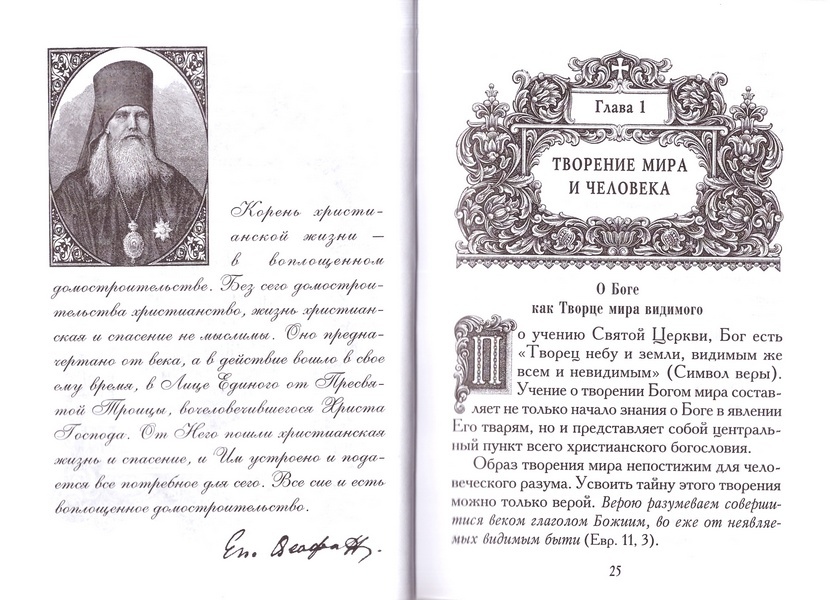 Корень христи-
анской жизни —
в воплощенном
домостроительстве. Без сего домострои-
тельства христианство, жизнь христиан-
ская и спасение не мыслимы. Оно предна-
чертано от века, а в действие вошло в свое
ему время, в Лице Единого от Пресвя-
той Троицы, вочеловечившегося Христа
Господа. От Него пошли христианская
жизнь и спасение, и Им устроено и пода-
ется все потребное для сего. Все сие и есть
воплощенное домостроительство.
Еп. Феофан.
Глава 1
ТВОРЕНИЕ МИРА
И ЧЕЛОВЕКА
О Боге
как Творце мира видимого
По учению Святой Церкви, Бог есть
«Творец небу и земли, видимым же
всем и невидимым» (Символ веры).
Учение о творении Богом мира состав-
ляет не только начало знания о Боге в явлении
Его тварям, но и представляет собой централь-
ный пункт всего христианского богословия.
Образ творения мира непостижим для чело-
веческого разума. Усвоить тайну этого творения
можно только верой. Верою разумеваем соверши-
тися веком глаголом Божиим, во еже от неявляе-
мых видимым быти (Евр. 11, 3).
25